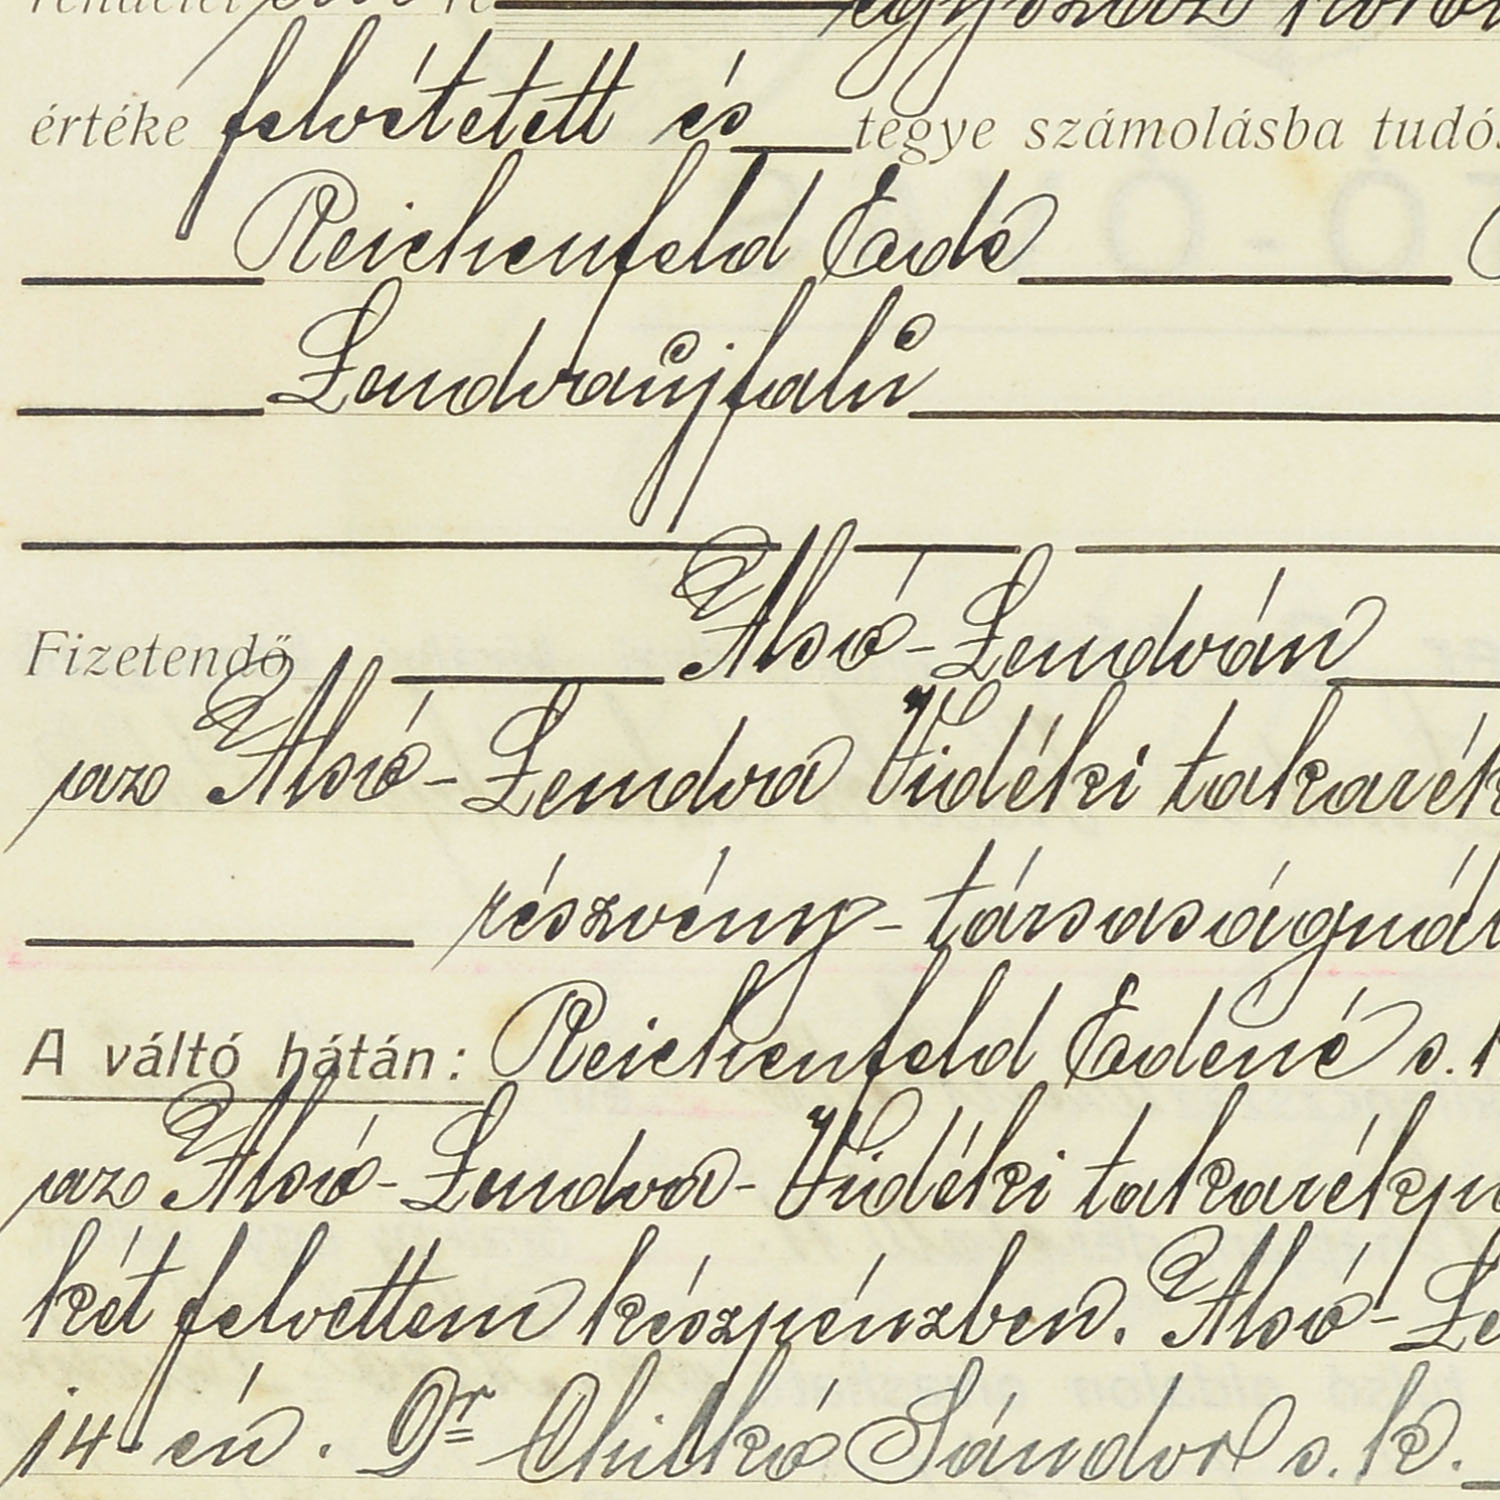 rendelet
értéke felvétetett és tegye számolásba
Reichenfeld Ede
Lendvaújfalu
Fizetendő Alsó-Lendván
az Alsó-Lendva Vidéki takarék
részvény-társaságnál
A váltó hátán: Reichenfeld Edéné s.
az Alsó-Lendva-Vidéki takarékp
két felvettem készpénzben. Alsó-Le
14-én. Dr Chilkó Sándor s. k.